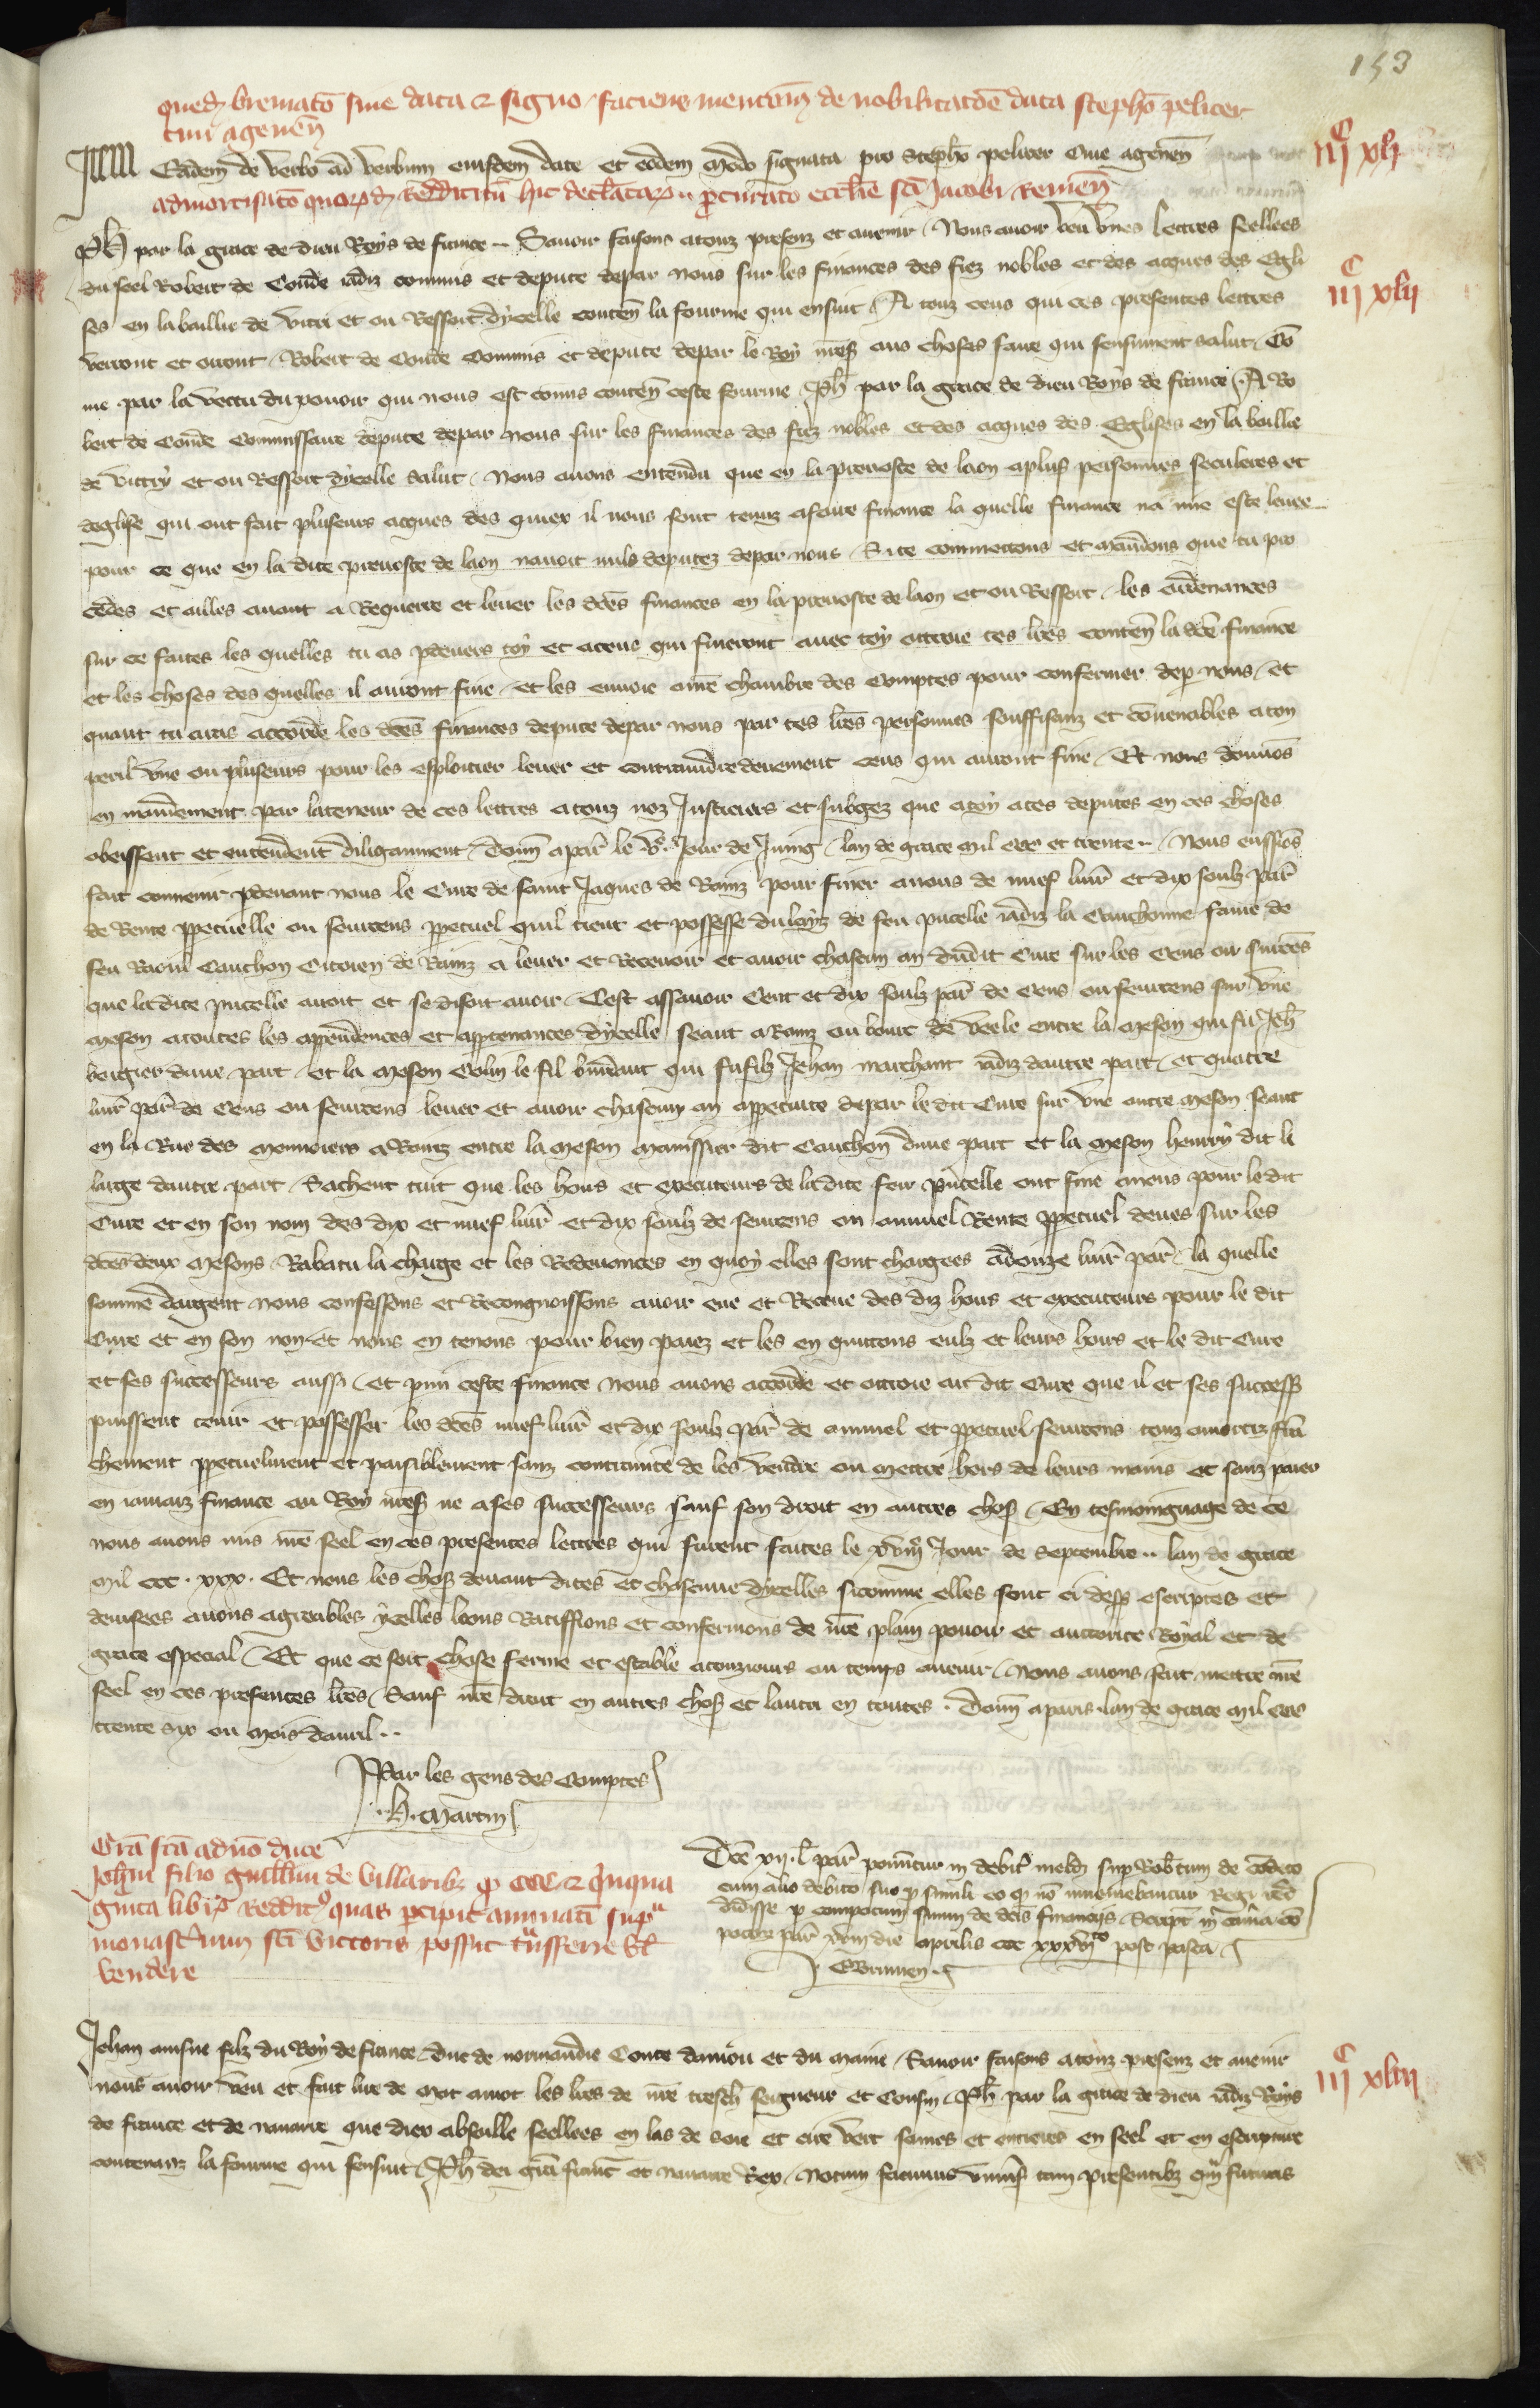 153
qued brematō sine data et signo faciens mentiōm de nobilitatōe data stephō peliter
civi agenēn
Eādem de verbo ad verbum eiusdem date et eodem modo signata pro Stephō peliter cive agenēn
iijᶜ xli
admortisatō quorūd reddituū hic declaratorū procuratō ecclīe scī Jacobi Remēn
Ph par la grace de dieu Roys de france Savoir faisons a touz presenz et avenir Nous avoir veu unes lettres seellees
du seel Robert de Conde iadiz commis et depute depar nous sur les finances des fiez nobles et des acques des Egli
iijᶜ xlii
ses en la baillie de vitri et ou Ressort dycelle conten la fourme qui ensuit A touz ceus qui ces presentes lettres
verront et orront Robert de Conde Commis et depute depar le Roy nres aus choses faire qui sensuivent salut Cō
me par la vertu du pouoir qui nous est comis conten ceste fourme Ph par la grace de dieu Roys de france A Ro
bert de Conde Commissaire depute depar nous sur les finances des fiez nobles et des acques des Eglises en la baillie
de vittry et ou Ressort dycelle salut Nous avons entendu que en la prevoste de laon a plus personnes seculeres et
deglise qui ont fait pluseurs acques des quiex il nous sont tenuz a faire finance la quelle finance na mie este levee
pour ce que en la dite prevoste de laon navoit nuls deputez depar nous Si te commettons et mandons que tu pro
cedes et ailles avant a Requerre et lever les dces finances en la prevoste de laon et ou Ressort les ordenances
sur ce faites les quelles tu as pdevers toy et a ceus qui fineront avec toy ottroie tes lres conten la dce finance
et les choses des quelles il auront fine et les envoie a nre chambre des Comptes pour confermer dep nous et
quant tu auras accorde les dces finances depute depar nous par tes lres personnes souffisanz et covenables a ton
peril une ou pluseurs pour les esploitier lever et contraindre deuement ceus qui auront fine Et nous donnōs
en mandement par la teneur de ces lettres a touz noz Justiciers et subgez que a toy a tes deputes en ces choses
obeissent et entendent diligamment Donn a par le vᵉ Jour de Juing lan de grace mil ccc et trente Nous eussiōs
fait convenir pdevant nous le Cure de saint Jaques de Rainz pour finer a nous de nuef livr et dix soulz par
de Rente ppetuelle ou seurcens ppetuel quil tient et possesse du lays de feu pucelle iadiz la Cauchonne fame de
feu Raoul Cauchon Citoien de Rainz a lever et Recevoir et avoir chascun an dudit Cure sur les cens ou surcēs
que la dite pucelle avoit et se disoit avoir Cest assavoir Cent et dix soulz par de cens ou seurcens sur une
meson a toutes les appendences et apptenances dycelle seant a Rainz ou bourc de veele entre la meson qui fu Jeh
bergier dune part et la meson Colin le fil qui fu filz Jehan marchant iadiz dautre part et quatre
livr par de Cens ou seurcens lever et avoir chascun an appetuite depar le dit Cure sur une autre meson seant
en la Rue des monnoiers a Rainz entre la meson dit Cauchon dune part et la meson henry dit le
large dautre part Sachent tuit que les hoirs et executeurs de la dite feu pucelle ont fine a nous pour le dit
Cure et en son nom des dix et nuef livr et dix soulz de seurcens ou annuel Rente ppetuel deues sur les
dces deux mesons Rabatu la charge et les Redevances en quoy elles sont chargees a douze livr par la quelle
somme dargent nous confessons et Recongnoissons avoir eue et Receue des diz hoirs et executeurs pour le dit
Cure et en son non Et nous en tenons pour bien paiez et les en quittons eulz et leurs hoirs et le dit Cure
et ses successeurs aussi et pmi ceste finance nous avons accorde et ottroie au dit Cure que il et ses success
puissent tenir et possesser les dces nuef livr et dix soulz par de annuel et ppetuel seurcens touz amortiz frā
chement ppetuelment et paisiblement sanz contrainte de les vendre ou mettre hors de leurs mains et sanz paier
en iamaiz finance au Roy nres ne a ses successeurs sauf son droit en autres chos En tesmoingnage de ce
nous avons mis nre seel en ces presentes lettres qui furent faites le Jour de Septembre lan de grace
mil ccc xxx Et nous les chos devant dites et chascune dycelles sicomme elles sont ci dess escriptes et
devisees avons agreables ycelles loons Ratiffions et confermons de nre plain pouoir et auctorite Royal et de
grace especial Et que ce soit chose ferme et estable a touzjours ou temps avenir Nous avons fait mettre nre
seel en ces presentes lres Sauf nre droit en autres chos et lautri en toutes Donn a paris lan de grace mil ccc
trente six ou mois davril
Par les gens des Comptes
H Martin
Grā scā ad vō duce
Johni filio guillmi de villaribz q ccc et quqᵘᵃ
ginta libris reddit quas percipit annuati supᵃ
monasterium sci victoris possit trasferre vl
vendere
Dce xii l par ponutur in debit meld sup Robtum de cōdeto
cum alio debito suo p simili eo q nō inveniebantur Regi redd
didisse p compotum suum de dcis financiis Script in camā cō
potorᵘ par xviii die aprilis ccc xxxviᵗᵒ post pasca
Jehan ainsne filz du Roy de france duc de normandie Conte danjou et du maine Savoir faisons a touz presenz et avenir
nous avoir veu et fait lire de mot a mot les lres de nre tresch seigneur et Cousin Ph par la grace de dieu iadiz Roys
iijᶜ xliii
de france et de navarre que diex absoille seellees en las de soie et cire vert saines et entieres en seel et en escripture
contenanz la fourme qui sensuit Ph dei gra franc et navarre Rex Notum facimus univs tam presentibz qm futuris